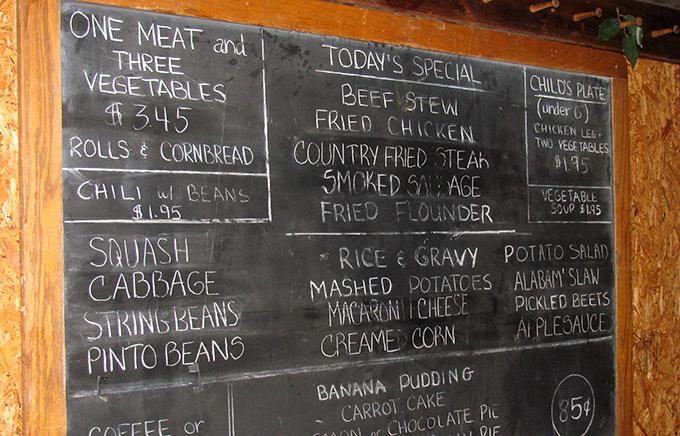 ONE MEAT and
THREE
VEGETABLES
$3.45
ROLLS & CORNBREAD
CHILI w/ BEANS
$1.95
TODAY'S SPECIAL
BEEF STEW
FRIED CHICKEN
COUNTRY FRIED STEAK
SMOKED SAUSAGE
FRIED FLOUNDER
CHILD'S PLATE
(under 6)
CHICKEN LEG.
TWO VEGETABLES
$1.95
VEGETABLE
SOUP $1.95
SQUASH
CABBAGE
STRING BEANS
PINTO BEANS
RICE & GRAVY
MASHED POTATOES
MACARONI CHEESE
CREAMED CORN
POTATO SALAD
ALABAM' SLAW
PICKLED BEETS
APPLESAUCE
COFFEE or
BANANA PUDDING
CARROT CAKE
LEMON or CHOCOLATE PIE
PIE
85¢